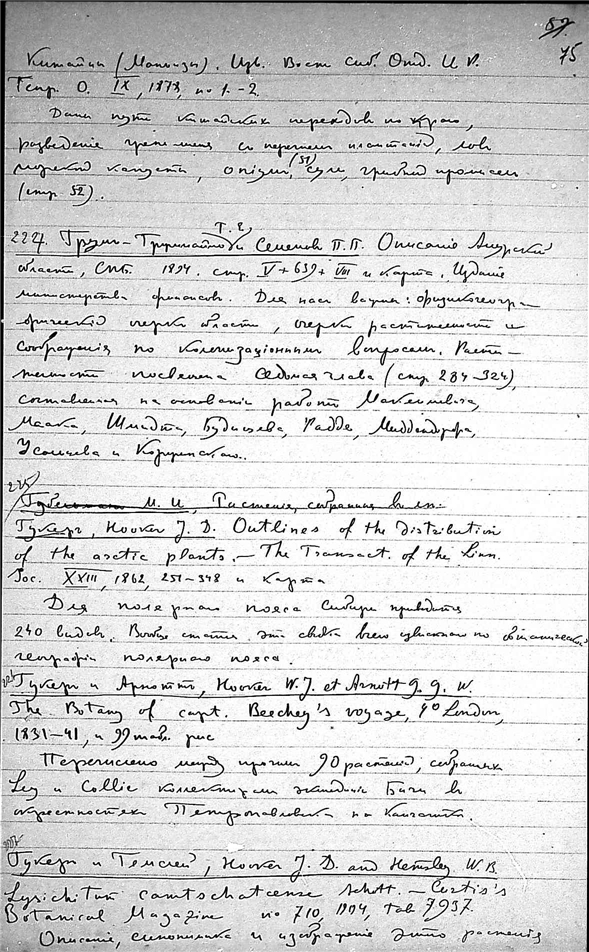 87.
75
Китайцы (Маньзы). Изв. Вост. Сиб. Отд. И. Р.
Геогр. О. IX, 1878, no 1.-2.
Даны пути китайских переходов по краю,
разведение женьшеня с перечнем плантаций, лов
морской капусты, опіум, (51) грибной промысел
(стр. 52).
224. Грум-Гржимайло Г.Е. и Семенов П.П. Описаніе Амурской
области, СПб. 1894. стр. V + 639 + VIII и карта. Изданіе
министерства финансов. Для нас важны: физикогеогра-
фическій очерк области, очерк растительности и
сообщенія по колонизаціонным вопросам. Расти-
тельности посвящена седьмая глава (стр. 284-324),
составленная на основаніи работ Максимовича,
Маака, Шмидта, Будищева, Радде, Миддендорфа,
Усольцева и Коржинского.
225
М. И., Растенія, собранныя
Гукер, Hooker J. D. Outlines of the distribution
of the arctic plants. — The Transact. of the Linn.
Soc. XXIII, 1862, 251-348 и карта
Для полярного пояса Сибири приводится
240 видов. Вообще статья эта сводка всего известного по ботанической
географіи полярного пояса.
226 Гукер и Арнотт, Hooker W. J. et Arnott G. G. W.
The Botany of capt. Beechey's voyage, 4° London,
1831-41, и 99 табл. рис
Перечислено между прочим 90 растеній, собранных
Lay и Collie коллекторами экспедиціи Бичи в
окрестностях Петропавловска на Камчатке.
227
Гукер и Гемслей, Hooker J. D. and Hemsley W. B.
Lysichitum camtschatcense Schott. — Curtis's
Botanical Magazine no 710, 1904, tab 7937.
Описаніе, синонимика и изображеніе этого растенія